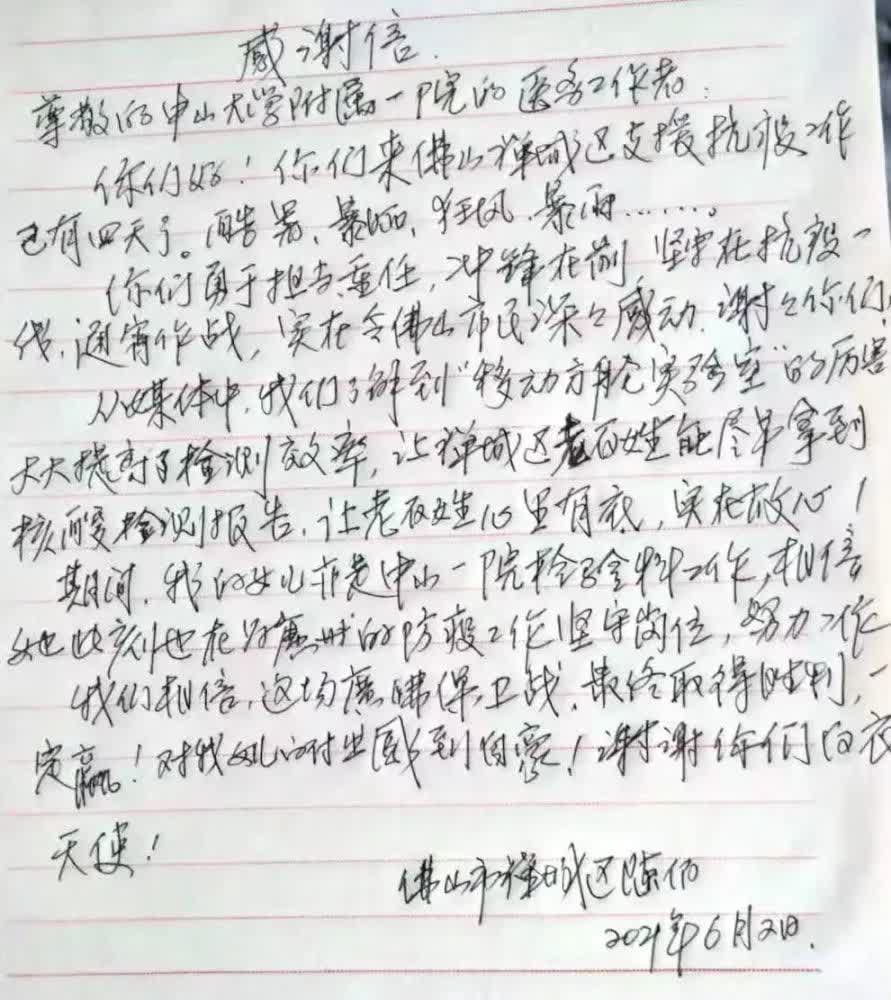 感谢信.
尊敬的中山大学附属一院的医务工作者:
你们好!你们来佛山禅城区支援抗疫工作
已有四天了。酷暑、暴晒、狂风、暴雨……。
你们勇于担当重任,冲锋在前,坚守在抗疫一
线,通宵作战,实在令佛山市民深々感动.谢々你们
从媒体中,我们了解到“移动方舱实验室”的厉害
大大提高了检测效率,让禅城区老百姓能尽早拿到
核酸检测报告,让老百姓心里有底,实在放心!
期间,我的女儿亦是中山一院检验科工作,相信
她此刻也在为广州的防疫工作坚守岗位,努力工作
我们相信,这场广佛保卫战,最终取得胜利,一
定赢!对我女儿的付出感到自豪!谢谢你们白衣
天使!
佛山市禅城区陈伯
2021年6月2日.